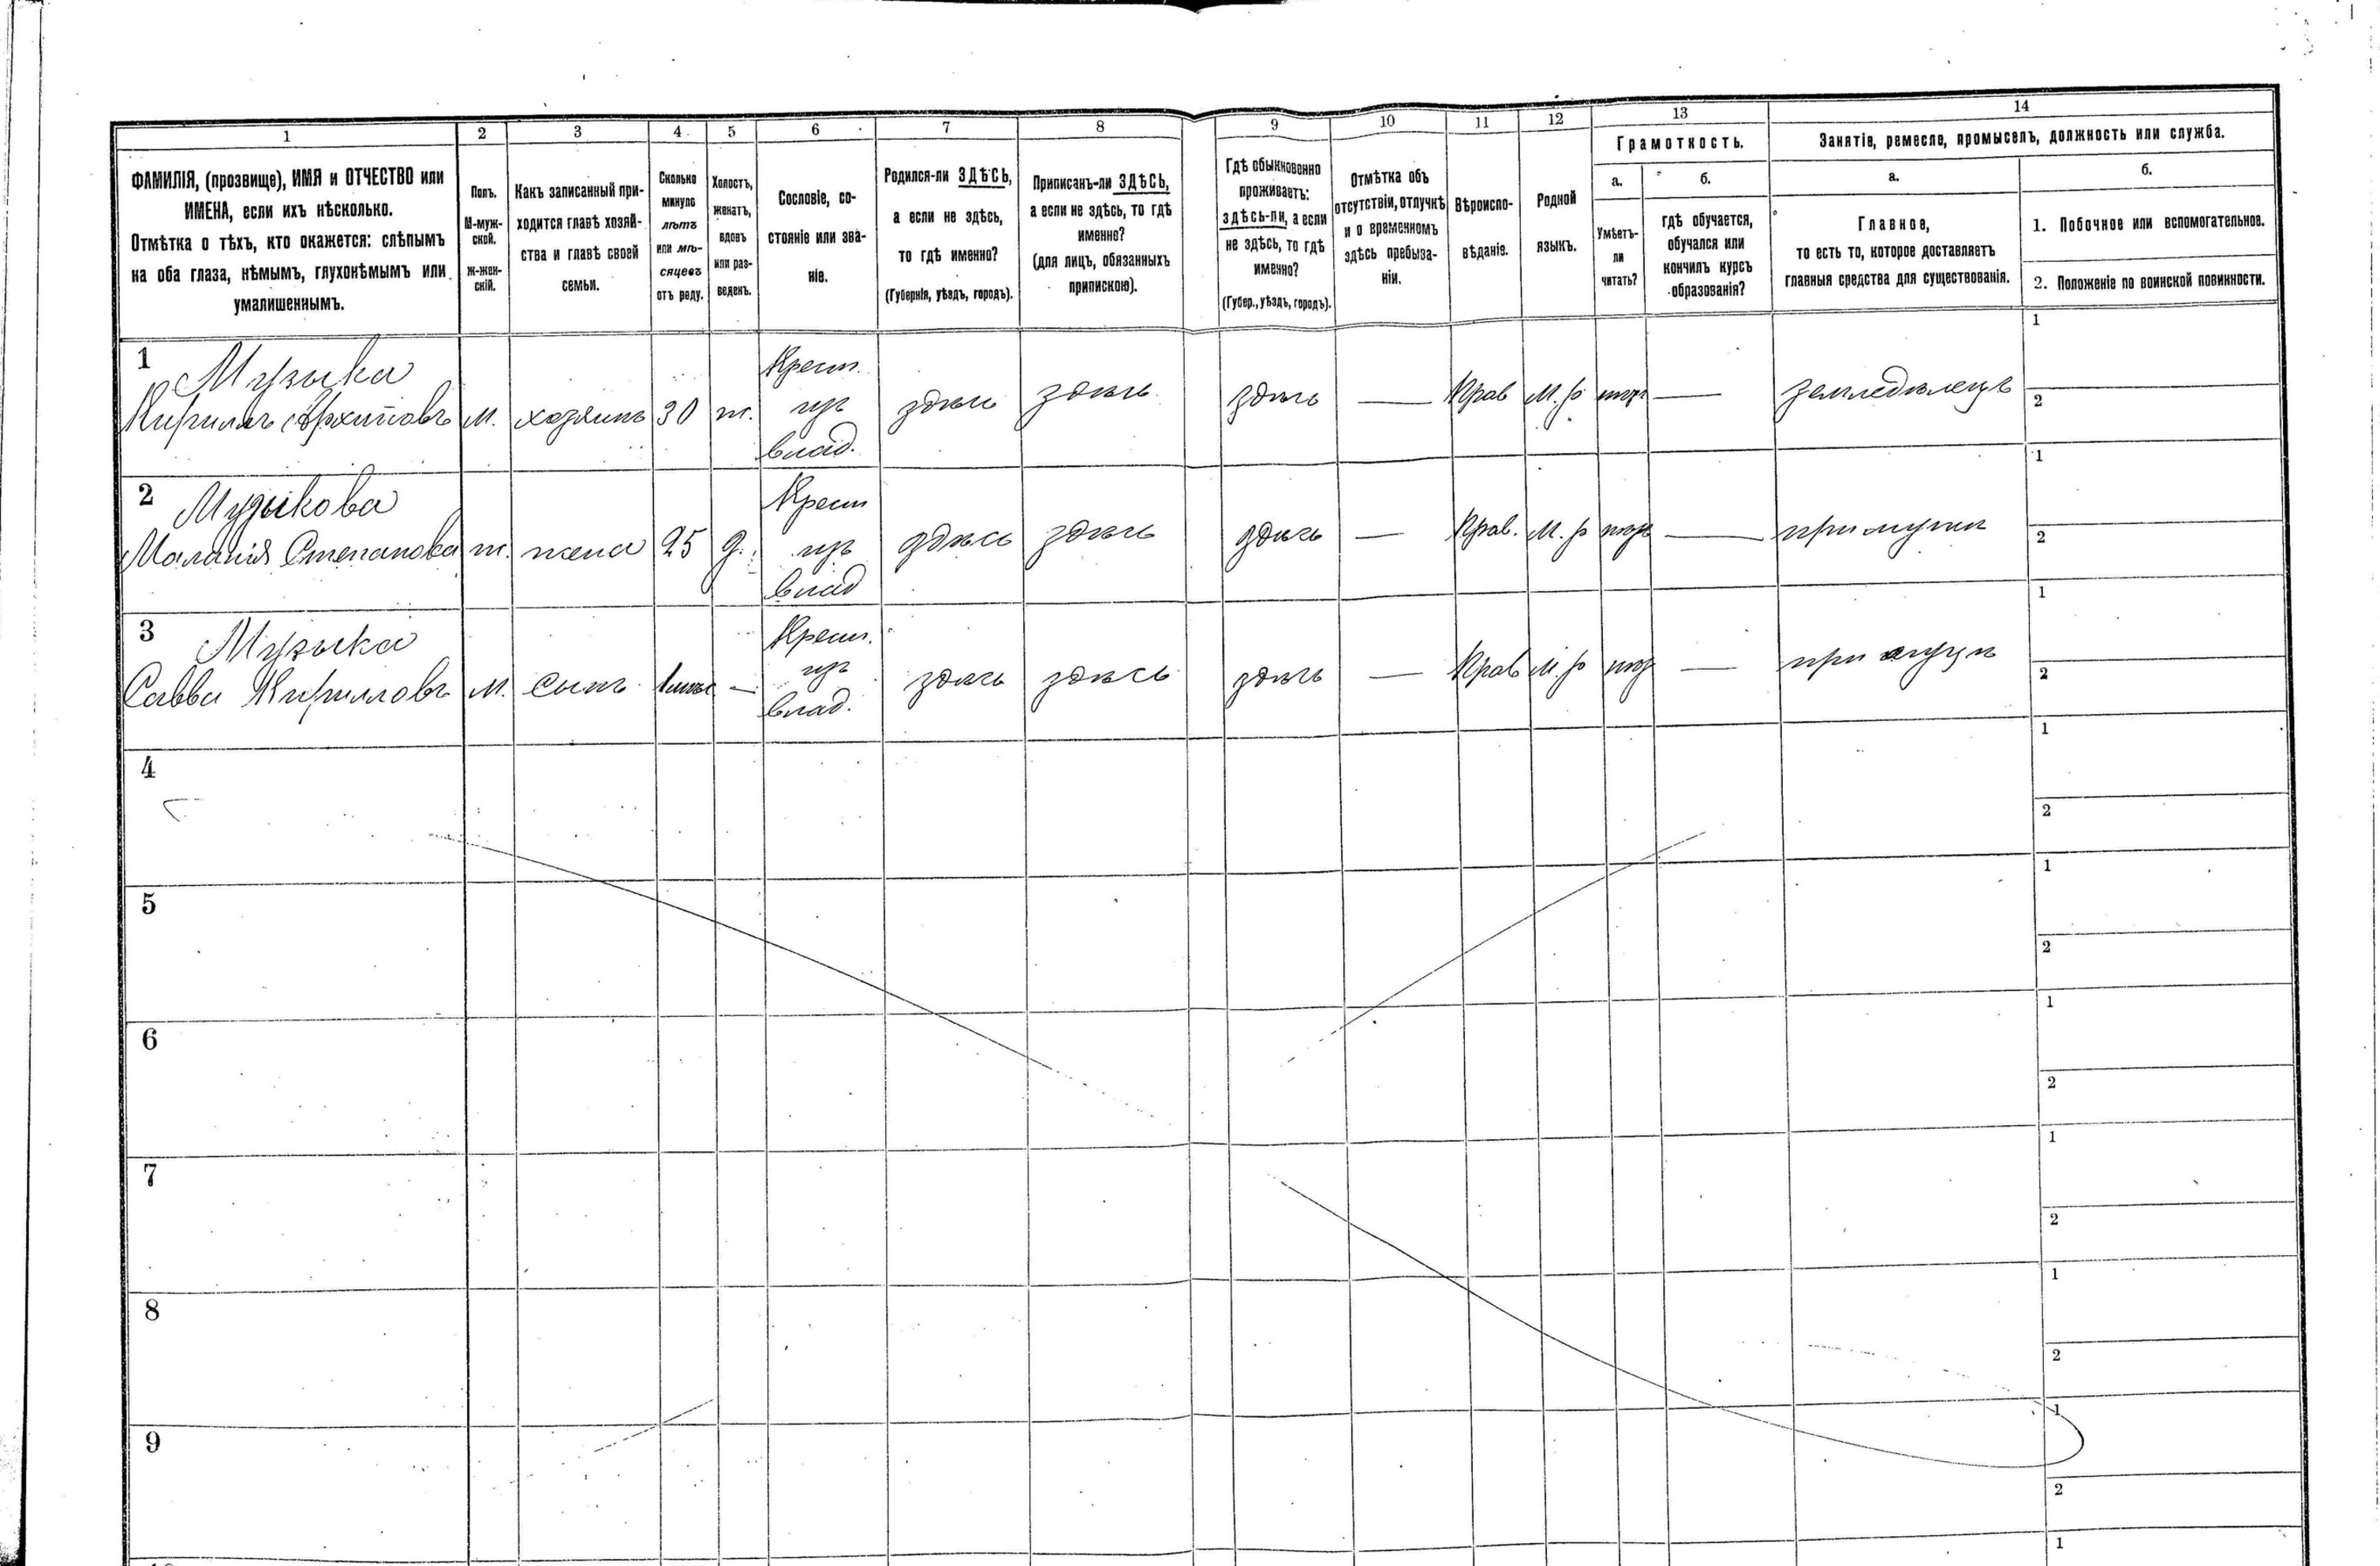 1
2
3
4
5
6
7
8
9
10
11
12
13
14
ФАМИЛІЯ, (прозвище), ИМЯ и ОТЧЕСТВО или
ИМЕНА, если ихъ нѣсколько.
Отмѣтка о тѣхъ, кто окажется: слѣпымъ
на оба глаза, нѣмымъ, глухонѣмымъ или
умалишеннымъ.
Полъ.
М-муж-
ской.
ж-жен-
скій.
Какъ записанный при-
ходится главѣ хозяй-
ства и главѣ своей
семьи.
Сколько
минуло
лѣтъ
или мѣ-
сяцевъ
отъ роду.
Холостъ,
женатъ,
вдовъ
или раз-
веденъ.
Сословіе, со-
стояніе или зва-
ніе.
Родился-ли ЗДѢСЬ,
а если не здѣсь,
то гдѣ именно?
(Губернія, уѣздъ, городъ).
Приписанъ-ли ЗДѢСЬ,
а если не здѣсь, то гдѣ
именно?
(для лицъ, обязанныхъ
припискою).
Гдѣ обыкновенно
проживаетъ:
здѣсь-ли, а если
не здѣсь, то гдѣ
именно?
(Губер., уѣздъ, городъ).
Отмѣтка объ
отсутствіи, отлучкѣ
и о временномъ
здѣсь пребыва-
ніи.
Вѣроиспо-
вѣданіе.
Родной
языкъ.
Грамотность.
а.
Умѣетъ-
ли
читать?
б.
гдѣ обучается,
обучался или
кончилъ курсъ
образованія?
Занятіе, ремесло, промыселъ, должность или служба.
а.
Главное,
то есть то, которое доставляетъ
главныя средства для существованія.
б.
1. Побочное или вспомогательное.
2. Положеніе по воинской повинности.
1 Музыка
Кирилъ Архиповъ м. хозяинъ 30 ж. Крест. изъ влад. здѣсь здѣсь здѣсь — Прав М.р — земледѣлецъ 1 2
2 Музыкова
Маланія Степанова ж. жена 25 Крест изъ влад здѣсь здѣсь здѣсь — Прав. М.р — при мужѣ 1 2
3 Музыка
Савва Кирилловъ м. сынъ — Крест. изъ влад. здѣсь здѣсь здѣсь — Прав М.р — при 1 2
4 1 2
5 1 2
6 1 2
7 1 2
8 1 2
9 1 2
1